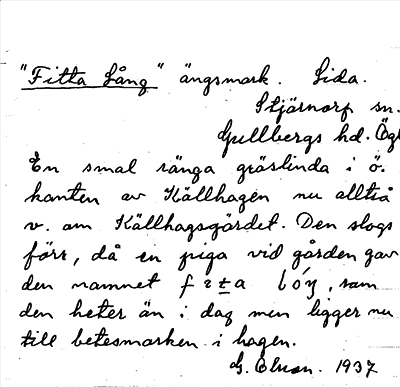 "Fitta Lång" ängsmark. Lida.
Stjärnorp sn.
Gullbergs hd. Ögl
En smal ränga gräslinda i ö.
kanten av Källhagen nu alltså
v. om Källhagsgärdet. Den slogs
förr, då en piga vid gården gav
den namnet som
den heter än i dag men ligger nu
till betesmarken i hagen.
G. Elvson. 1937